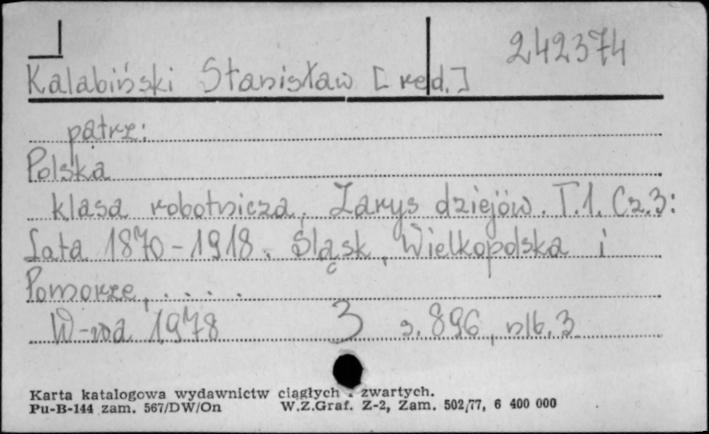 242374
Kalabiński Stanisław [red.]
patrz:
Polska
klasa robotnicza, Zarys dziejów. T.1. Cz.3:
Lata 1870-1918. Śląsk, Wielkopolska i
Pomorze, ....
W-wa 1978 3 s. 896, nlb. 3
Karta katalogowa wydawnictw ciągłych i zwartych.
Pu-B-144 zam. 567/DW/On W.Z.Graf. Z-2, Zam. 502/77, 6 400 000